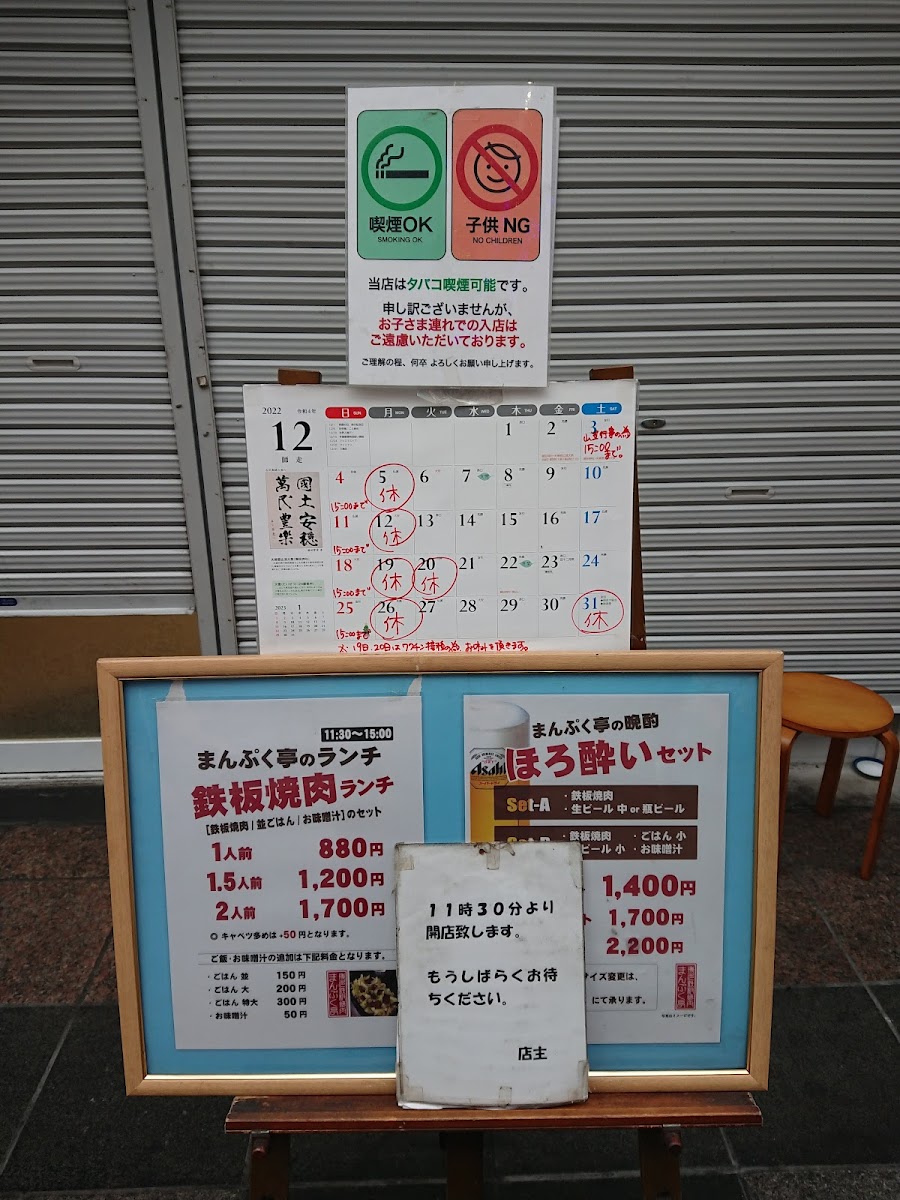 喫煙OK
SMOKING OK
子供 NG
NO CHILDREN
当店はタバコ喫煙可能です。
申し訳ございませんが、
お子さま連れでの入店は
ご遠慮いただいております。
ご理解の程、何卒 よろしくお願い申し上げます。
2022 令和4年
12
師走
國土安穏
萬民豊樂
日 SUN 月 MON 火 TUE 水 WED 木 THU 金 FRI 土 SAT
1 2 3
15:00まで。
4 5 6 7 8 9 10
15:00まで 休
11 12 13 14 15 16 17
15:00まで 休
18 19 20 21 22 23 24
15:00まで 休 休
25 26 27 28 29 30 31
15:00まで 休 休
2023 1
19日.20日はワクチン接種の為、お休みを頂きます。
11:30〜15:00
まんぷく亭のランチ
鉄板焼肉ランチ
[鉄板焼肉 | 並ごはん | お味噌汁] のセット
1人前 880円
1.5人前 1,200円
2人前 1,700円
◎ キャベツ多めは +50円となります。
ご飯・お味噌汁の追加は下記料金となります。
・ごはん 並 150円
・ごはん 大 200円
・ごはん 特大 300円
・お味噌汁 50円
まんぷく亭
まんぷく亭の晩酌
ほろ酔いセット
Asahi
Set-A
・鉄板焼肉
・生ビール 中 or 瓶ビール
・鉄板焼肉 ・ごはん 小
ビール 小 ・お味噌汁
1,400円
1,700円
2,200円
イズ変更は、
にて承ります。
まんぷく亭
写真はイメージです。
11時30分より
開店致します。
もうしばらくお待
ちください。
店主